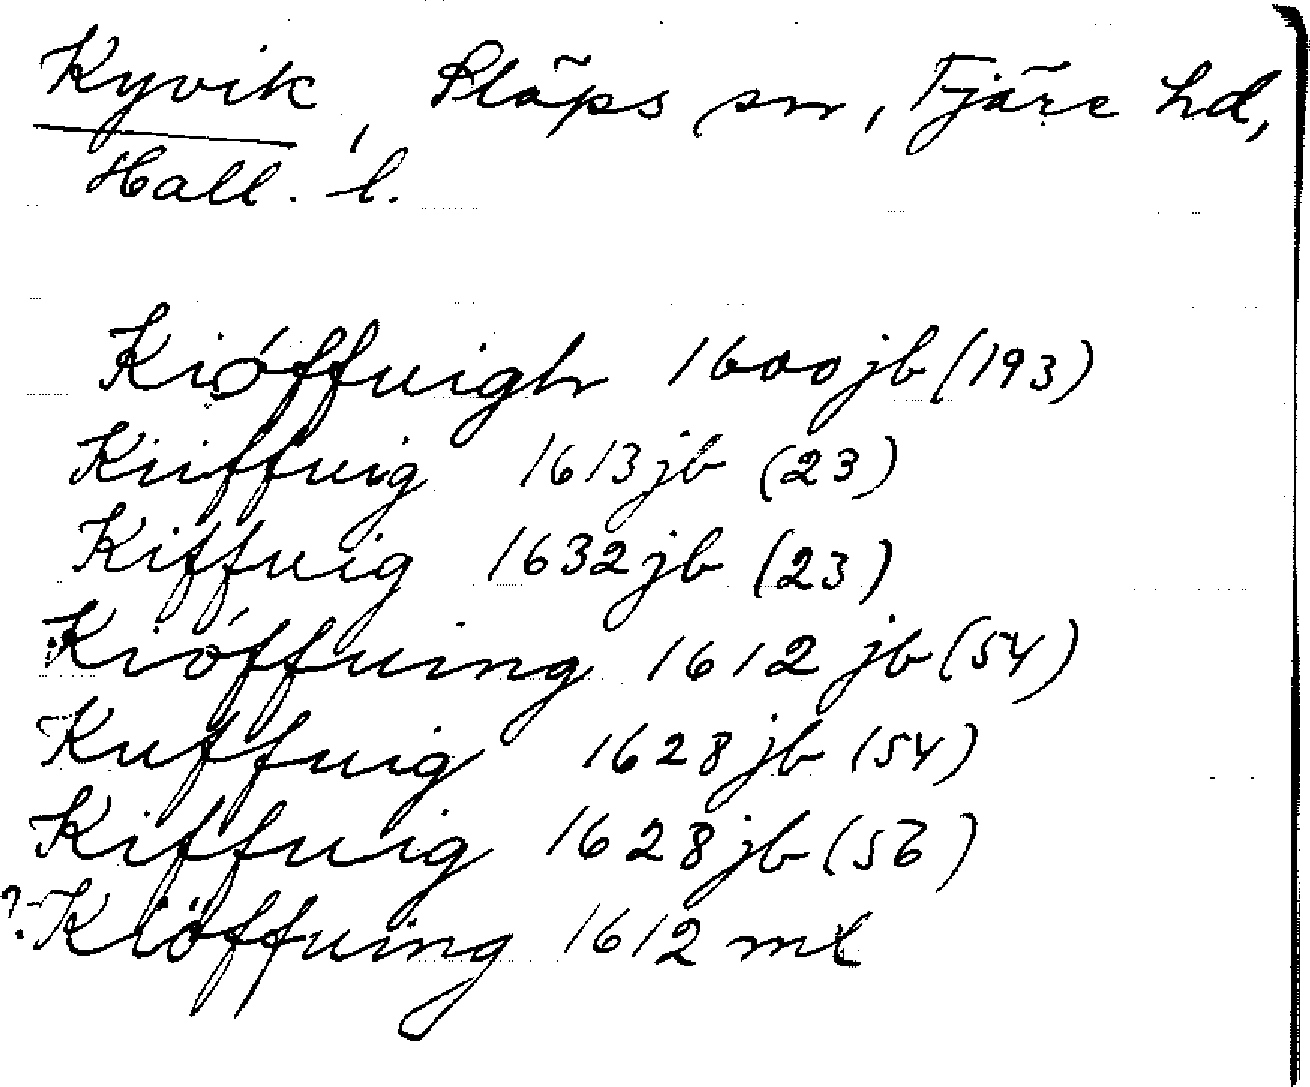 Kyvik, Släps sn, Fjäre hd,
Hall. l.
Kiøffuigh 1600 jb (193)
Kiiffuig 1613 jb (23)
Kiffuig 1632 jb (23)
Kióffuing 1612 jb (54)
Kuffuig 1628 jb (54)
Kiffuig 1628 jb (56)
?. Kiöffuing 1612 ml